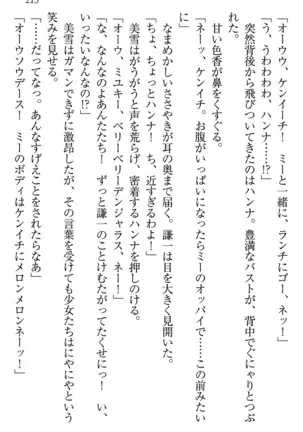 「オーウウ、ケンイチ！　ミーと一緒に、ランチにゴー、ネッ！」
「う、うわわわわ、ハンナ……!?」
突然背後から飛びついてきたのはハンナ。豊満なバストが、背中でぐにゃりとつぶれた。
甘い色香が鼻をすぐる。
「ネーッ、ケンイチ。お腹がいっぱいになったらミーのオッパイで……この前みたいに」
なまめかしいささやきが耳の奥まで届く。謙一は目を大きく見開いた。
「ちょ、ちょっとハンナ！　ち、近すぎるわよ！」
美雪はがうがうと声を荒らげ、密着するハンナを押しのける。
「オーウ、ミユキー、ベリーベリーデンジャラス、ネー！」
「な、なんなのよあんたたち！　ずっと謙一のことけむたがってたくせに、い、いったいなんなの!?」
美雪はガマンできずに激昂したが、その言葉を受けても少女たちはにやにやとした笑みを見せる。
「……だってなっ。あんなすげえことをされたらなあ」
「オーウソウデース！　ミーのボディはケンイチにメロンメロンネーッ！」